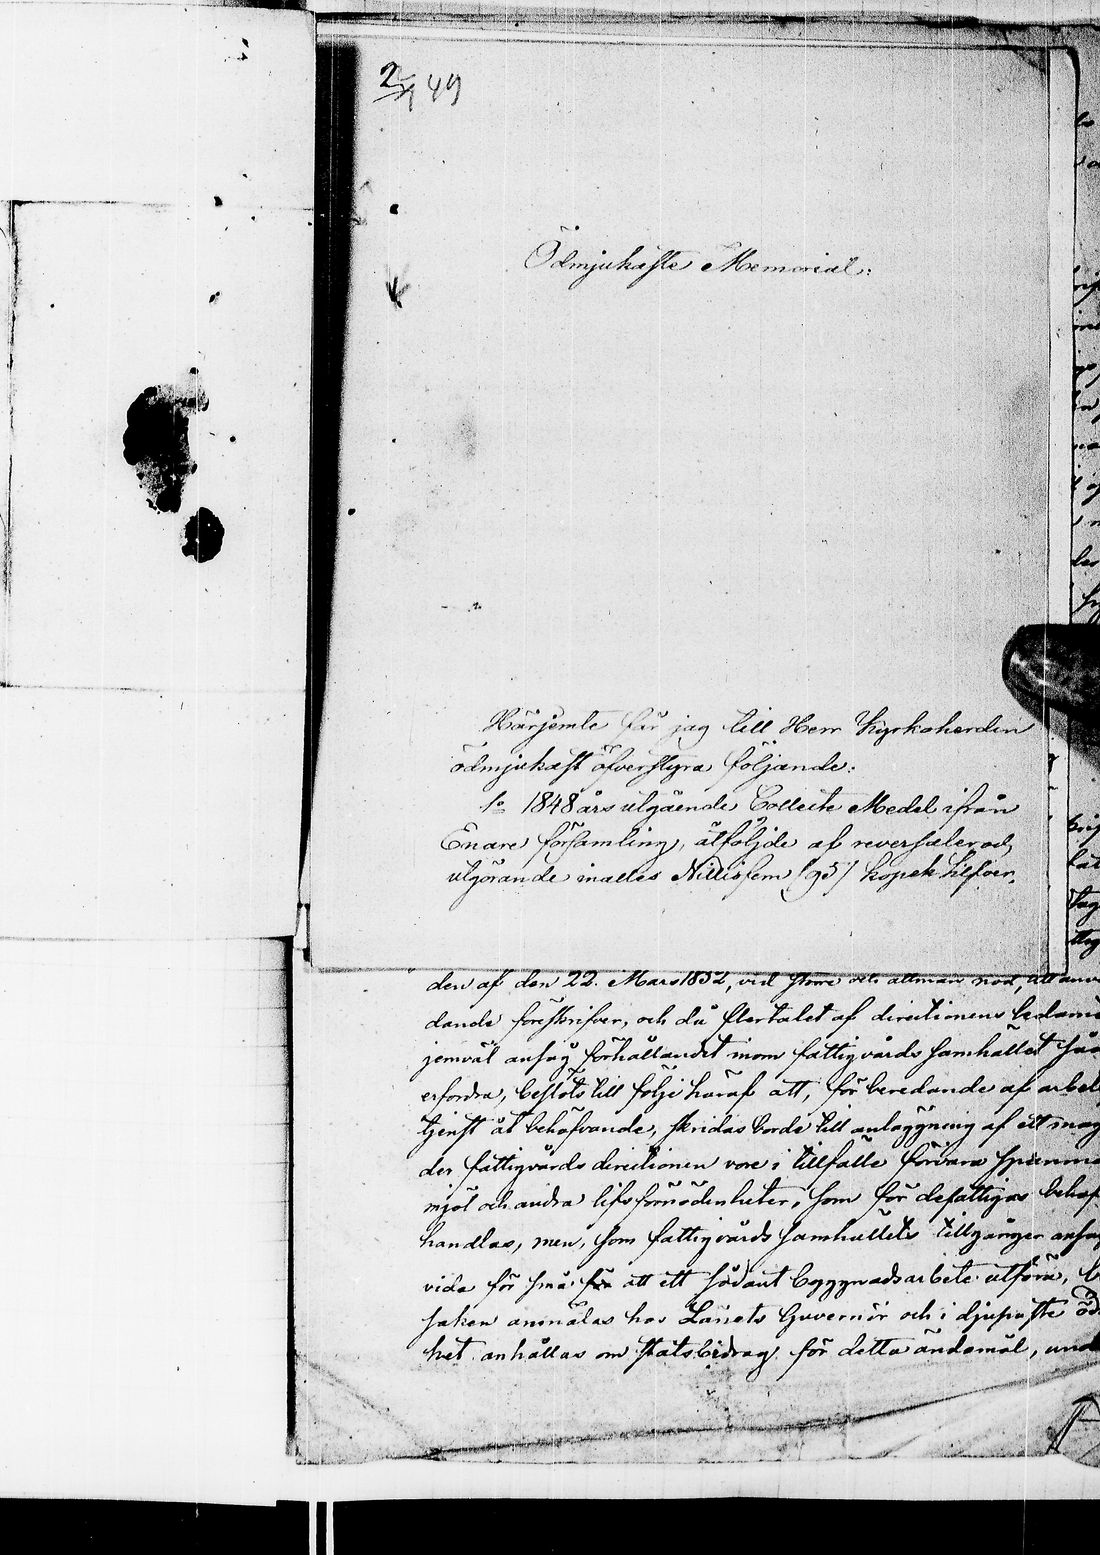 2/1 49
Ödmjukaste Memorial:
Härjemte får jag till Herr Kyrkoherden
ödmjukast öfverstyra följande:
1o 1848 års utgående Collecte Medel ifrån
Enare församling, åtföljde af reversaler och
utgörande inalles Nittifem (95) kopek Silfver,
den af den 22. Mars 1852, vid större och allmän nöd, att anv
dande föreskrifver, och då flertalet af directionens ledamö
jemväl ansåg förhållandet inom fattigvårds samhället så
erfordra, beslöts till följe häraf att, för beredande af arbet
tjenst åt behöfvande, skridas borde till anläggning af ett mag
der fattigvårds directionen vore i tillfälle förvara spanm
mjöl och andra lifsförnödenheter, som för de fattigas behof
handlas, men, som fattigvårds samhällets tillgångar ansåg
vida för små för att ett sådant byggnadsarbete utföra, b
saken anmälas hos Länets Guvernör och i djupaste öd
het anhållas om statsbidrag för detta ändamål, und